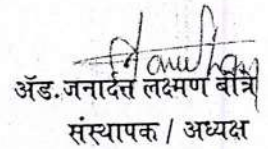 ॲड. जनार्दन लक्ष्मण बोत्रे
संस्थापक / अध्यक्ष